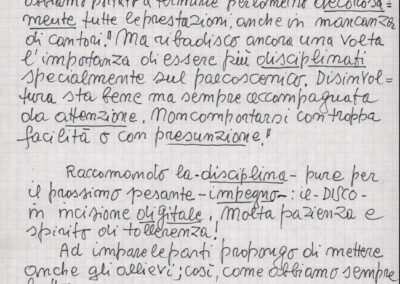 portato a termine decorosa=
mente tutte le prestazioni, anche in mancanza
di cantori." Ma ribadisco ancora una volta
l'importanza di essere più disciplinati
specialmente sul palcoscenico. Disinvol=
tura sta bene ma sempre accompagnata
da attenzione. Non comportarsi con troppa
facilità o con presunzione."
Raccomando la - disciplina - pure per
il prossimo pesante - impegno - : il - DISCO -
in incisione digitale. Molta pazienza e
spirito di tolleranza!
Ad imparare le parti propongo di mettere
anche gli allievi; così, come abbiamo sempre